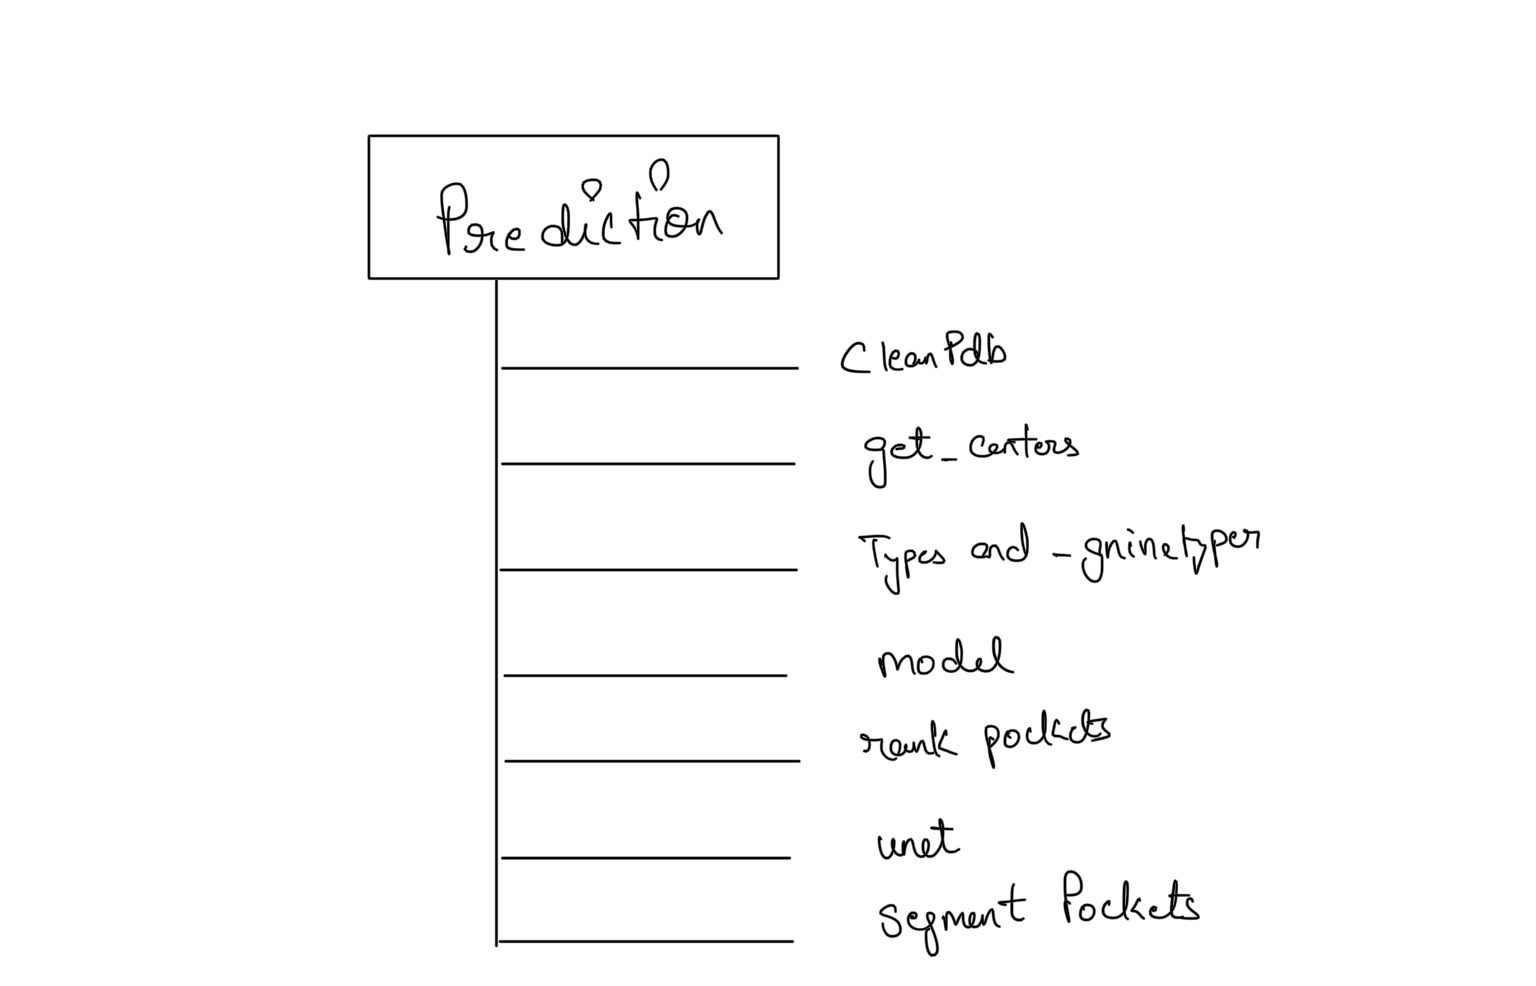 Prediction
CleanPdb
get_centers
Types and _gninetyper
model
rank pockets
unet
Segment Pockets